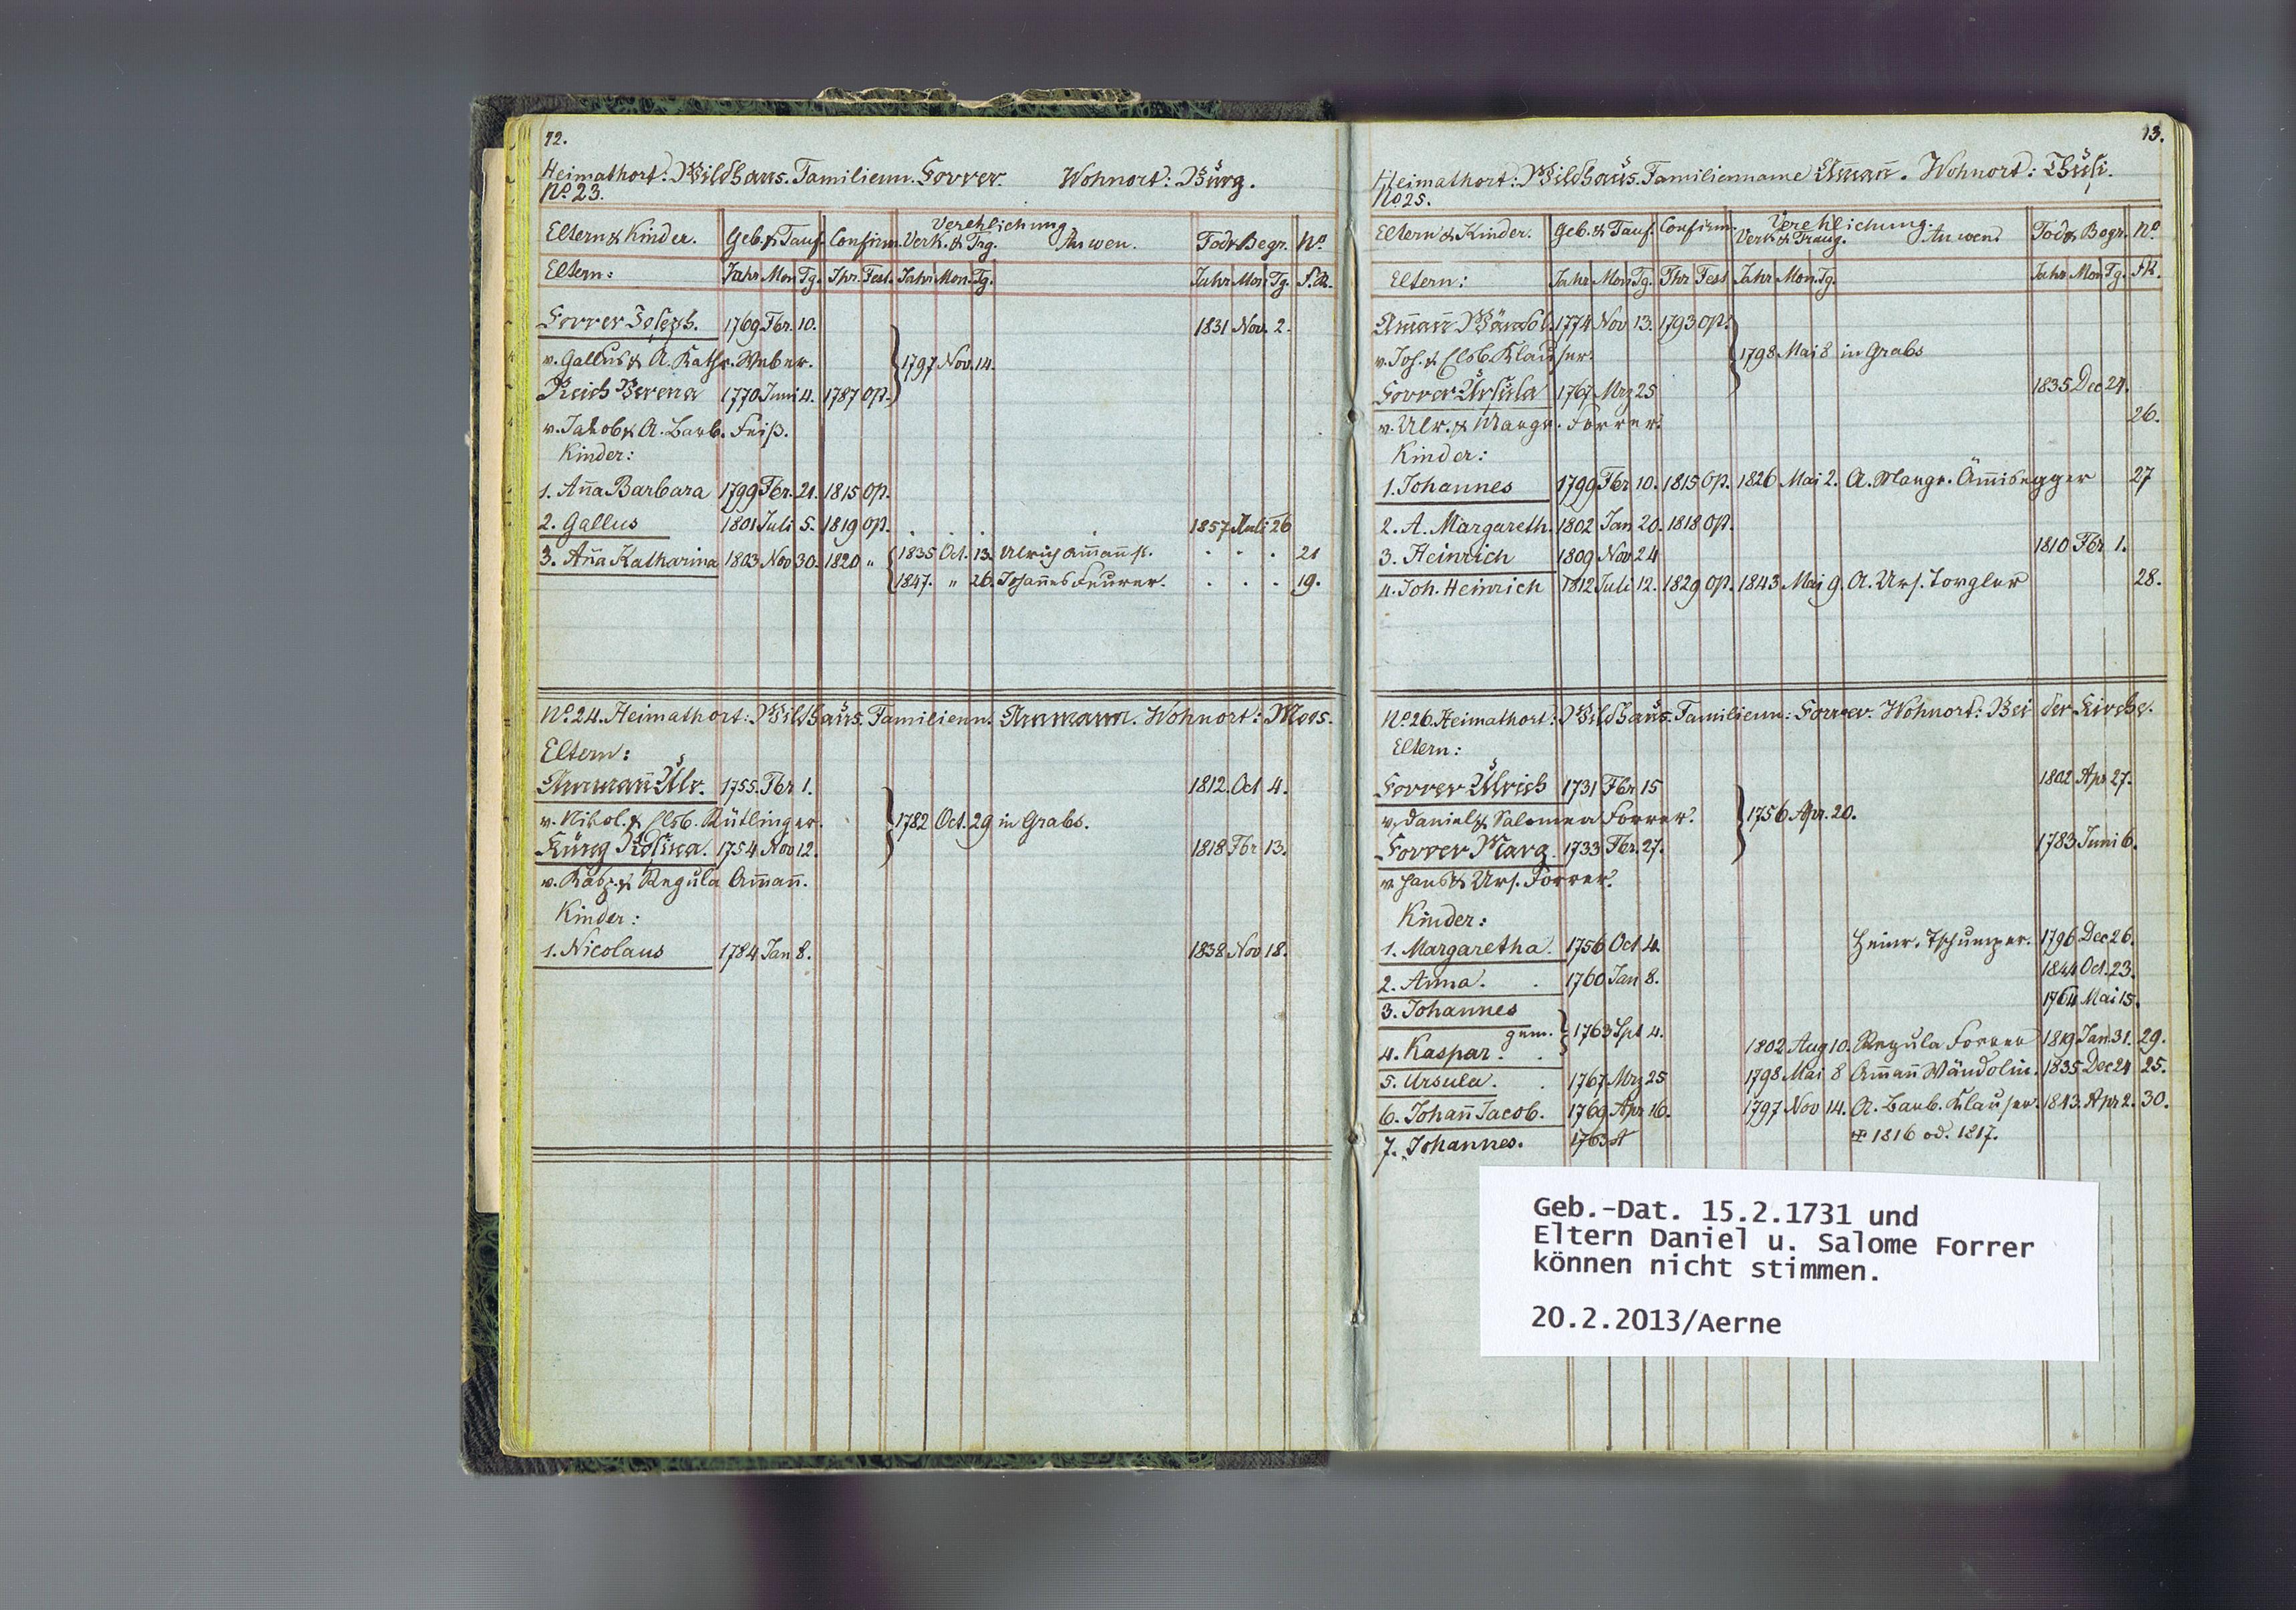 12.
Heimathort: Wildhaus. Familienn. Forrer. Wohnort: Burg.
No. 23.
Eltern & Kinder. Geb. & Tauf. Confirm. Verehlichung
Verk. & Trg. An wen. Tod & Begr. No.
Eltern: Jahr Mon Tg. Jhr. Fest. Jahr Mon. Tg. Jahr Mon Tg. F.R.
Forrer Joseph. 1769 Fbr. 10. 1831 Nov. 2.
v. Gallus & A. Kathr. Weber. 1797 Nov. 14.
Reich Verena 1770 Juni 4. 1787 Op.
v. Jakob & A. Barb. Feiß.
Kinder:
1. Aña Barbara 1799 Fbr. 21. 1815 Op.
2. Gallus 1801 Juli 5. 1819 Op. . . . . 1857 Juli 26
3. Aña Katharina 1803 Nov 30. 1820 " 1835 Oct. 13. Ulrich Am̄añ . . . 21
1847. " 26. Johañes Feurer. . . . 19.
No. 24. Heimathort: Wildhaus. Familienn. Ammann. Wohnort: Moos.
Eltern:
Ammañ Ulr. 1755. Fbr 1. 1812. Oct 4.
v. Nikol. & Elsb. Rütlinger. 1782 Oct. 29 in Grabs.
Küng Rosina. 1754 Nov 12. 1818 Fbr 13.
v. & Regula Am̄añ.
Kinder:
1. Nicolaus 1784 Jan 8. 1838 Nov 18.
13.
Heimathort: Wildhaus. Familienname Am̄añ. Wohnort:
No. 25.
Eltern & Kinder. Geb. & Tauf. Confirm. Verehlichung.
Verk. & Traug. An wen. Tod & Begr. No.
Eltern: Jahr Mon Tg. Jhr Fest Jahr Mon. Tg. Jahr Mon Tg. F.R.
Am̄añ Wändl. 1774 Nov 13. 1793 Op.
v. Joh. & Elsb. Klauser. 1798 Mai 8 in Grabs
Forrer Ursula 1767 Mrz 25 1835 Dec 24.
v. Ulr. & Margr. Forrer. 26.
Kinder:
1. Johannes 1799 Fbr 10. 1815 Op. 1826 Mai 2. A. Margr. Äm̄isegger 27
2. A. Margareth. 1802 Jan 20. 1818 Op.
3. Heinrich 1809 Nov 24 1810 Fbr 1.
4. Joh. Heinrich 1812 Juli 12. 1829 Op. 1843 Mai 9. A. Urs. Torgler 28.
No. 26. Heimathort: Wildhaus. Familienn: Forrer. Wohnort: Bei der Kirche.
Eltern:
Forrer Ulrich 1731 Fbr 15 1802 Apr 27.
v. Daniel & Salomea Forrer. 1756 Apr. 20.
Forrer Marg. 1733 Fbr. 27. 1783 Juni 6.
v. Hans & Urs. Forrer.
Kinder:
1. Margaretha. 1756 Oct 4. Heinr. Tschumper. 1796 Dec 26.
2. Anna. . 1760 Jan 8. 1844 Oct. 23.
3. Johannes 1764 Mai 15.
gem. 1763 Spt 4.
4. Kaspar. . 1802 Aug 10. Regula Forrer 1819 Jan. 31. 29.
5. Ursula. . 1767 Mrz 25 1798 Mai 8 Am̄añ Wändolin. 1835 Dec 24 25.
6. Johañ Jacob. 1769 Apr 16. 1797 Nov 14. A. Barb. Klauser. 1843. Apr 2. 30.
7. Johannes. 1763 1816 od. 1817.
Geb.-Dat. 15.2.1731 und
Eltern Daniel u. Salome Forrer
können nicht stimmen.
20.2.2013/Aerne